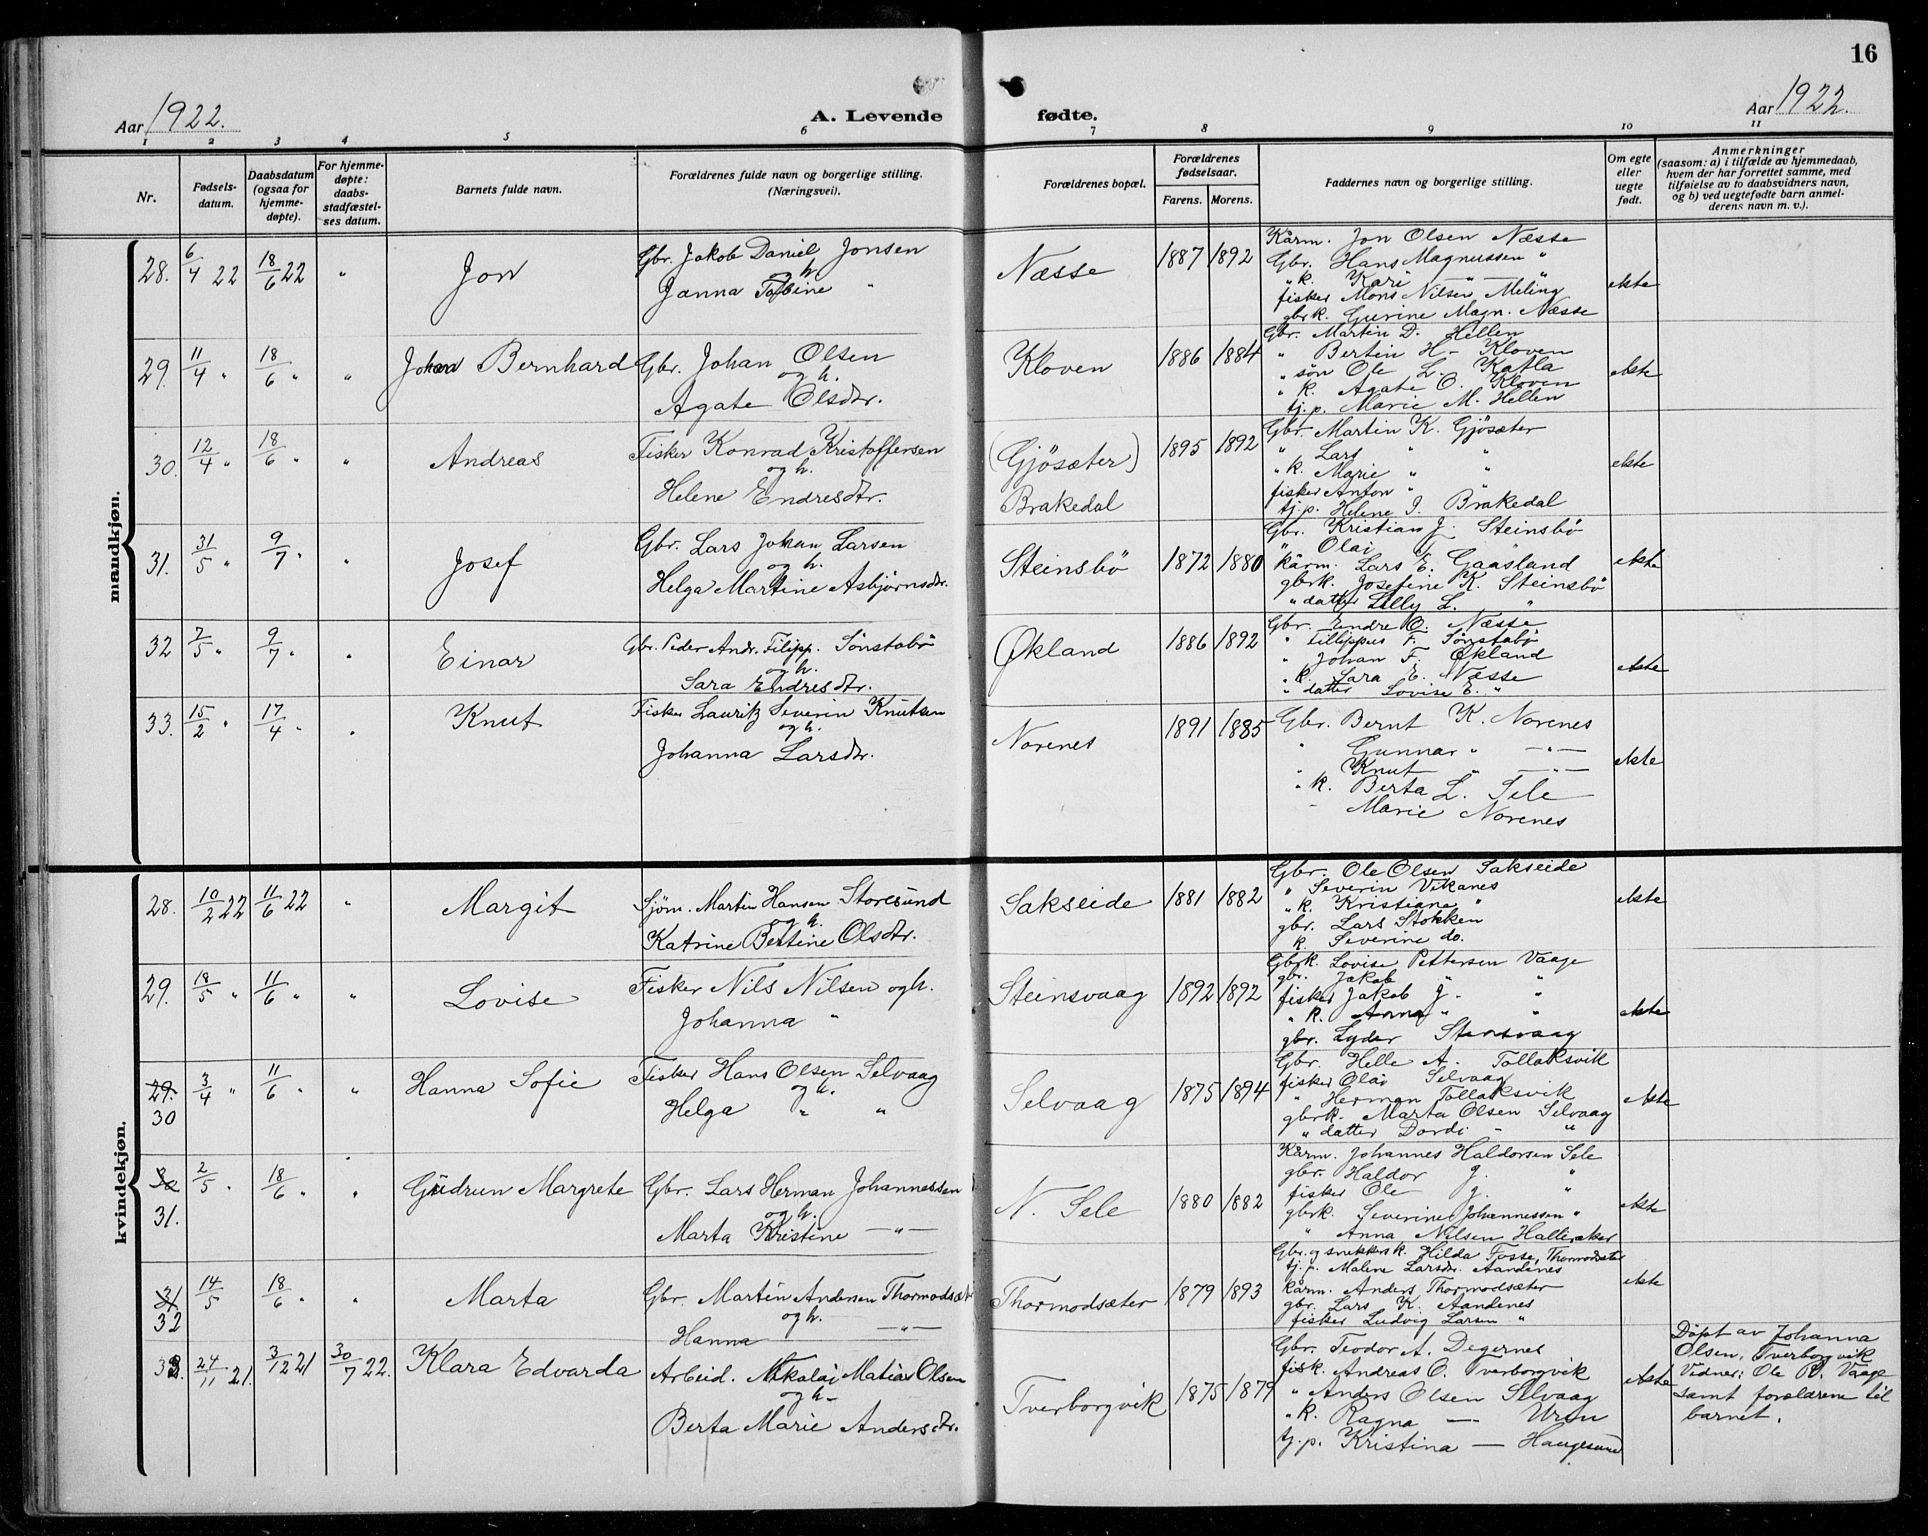 16
Aar 1922.
A. Levende fødte.
Aar 1922.
1 2 3 4 5 6 7 8 9 10 11
Nr.
Fødsels-
datum.
Daabsdatum
(ogsaa for
hjemme-
døpte).
For hjemme-
døpte:
daabs-
stadfæstel-
ses datum.
Barnets fulde navn.
Forældrenes fulde navn og borgerlige stilling.
(Næringsvei).
Forældrenes bopæl.
Forældrenes
fødselsaar.
Farens. Morens.
Faddernes navn og borgerlige stilling.
Om egte
eller
uegte
født.
Anmerkninger
(saasom: a) i tilfælde av hjemmedaab,
hvem der har forrettet samme, med
tilføielse av to daabsvidners navn,
og b) ved uegtefødte barn anmel-
derens navn m. v.).
mandkjøn.
28. 6/4 22 18/6 22 " Jon
Gbr. Jakob Daniel Jonsen
Janna "
Næsse 1887 1892
Kårm. Jon Olsen Næsse
Gbr. Hans Magnussen "
" k. Kari — " — "
fisker Mons Nilsen Meling
gbrk. Gurine Magn. Næsse
ekte
29. 11/4 " 18/6 " " Johan Bernhard
Gbr. Johan Olsen
og h.
Agate Olsdtr.
Kloven 1886 1884
Gbr. Martin D. Hellen
" Bertin H- Kloven
" søn Ole L. Katla
" k. Agate O. Kloven
tj.p. Marie M. Hellen
ekte
30. 12/4 " 18/6 " " Andreas
Fisker Konrad Kristoffersen
og h.
Helene Endresdtr.
(Gjøsæter)
Brakedal
1895 1892
Gbr. Martin K. Gjøsæter
" Lars " "
" k. Marie " "
fisker Anton " "
tj.p. Helene I. Brakedal
ekte
31. 31/5 " 9/7 " " Josef
Gbr. Lars Johan Larsen
og h.
Helga Martine Asbjørnsdtr.
Steinsbø 1872 1880
Gbr. Kristian J. Steinsbø
" Olai " "
kårm. Lars E. Gaasland
gbrk. Josefine K. Steinsbø
" datter Lilly L. "
ekte
32 7/5 " 9/7 " " Einar
Gbr. Peder Andr. Filipp. Sønstabø
og h.
Sara Endresdtr.
Økland 1886 1892
Gbr. Endre O. Næsse
" Fillippus F. Sønstabø
" Johan F. Økland
" k. Sara E. Næsse
" datter Lovise E. "
ekte
33. 15/2 " 17/4 " " Knut
Fisker Lauritz Severin Knutsen
og h.
Johanna Larsdtr.
Norenes 1891 1885
Gbr. Bernt K. Norenes
" Gunnar " — " —
" Knut " — " —
" k. Berta L. Sele
Marie Norenes
ekte
kvindekjøn.
28. 10/2 22 11/6 22 " Margit
Sjøm. Martin Hansen Storesund
og h.
Katrine Bertine Olsdtr.
Sakseide 1881 1882
Gbr. Ole Olsen Sakseide
" Severin Vikanes
" k. Kristiane "
gbr. Lars Stokken
k. Severine do.
ekte
29. 18/5 " 11/6 " " Lovise
Fisker Nils Nilsen og h.
Johanna "
Steinsvaag 1892 1892
Gbrk. Lovise Pettersen Vaage
gbr. Jakob " "
fisker Jakob J. "
" k. Anna " "
gbr. Lyder Stensvaag
ekte
29.
30
3/4 " 11/6 " " Hanna Sofie
Fisker Hans Olsen Selvaag
og h.
Helga " "
Selvaag 1875 1894
Gbr. Helle A. Tollaksvik
fisker Olai Selvaag
" Herman Tollaksvik
gbrk. Marta Olsen Selvaag
" datter Dordi - "
ekte
30
31.
2/5 " 18/6 " " Gudrun Margrete
Gbr. Lars Herman Johannessen
og h.
Marta Kristine — " —
N. Sele 1880 1882
Kårm. Johannes Haldorsen Sele
gbr. Haldor J. "
fisker Ole J. "
gbrk. Severine Johannessen "
" Anna Nilsen Halleraker
ekte
31
32
14/5 18/6 " " Marta
Gbr. Martin Andersen Thormodsæt
og h.
Hanna — " —
Thormodsæter 1879 1893
Gbr. og snekkerk. Hilda Fosse, Thormodsæter
tj.p. Malene Larsdtr. Aandenes
kårm. Anders Thormodsæter
gbr. Lars K. Aandenes
fisker Ludvig Larsen "
ekte
33. 24/11 21. 3/12 21 30/7 22. Klara Edvarda
Arbeid. Nikolai Matias Olsen
og h-
Berta Marie Andersdtr.
Tverborgvik 1875 1879
Gbr. Teodor A. Degernes
fisk. Andreas O. Tverborgvik
" Anders Olsen Selvaag
" k. Ragna — Uren
tj.p. Kristina — Haugesund
ekte
Døpt av Johanna
Olsen, Tverborgvik
Vidner: Ole P. Vaage
samt forældrene til
barnet.